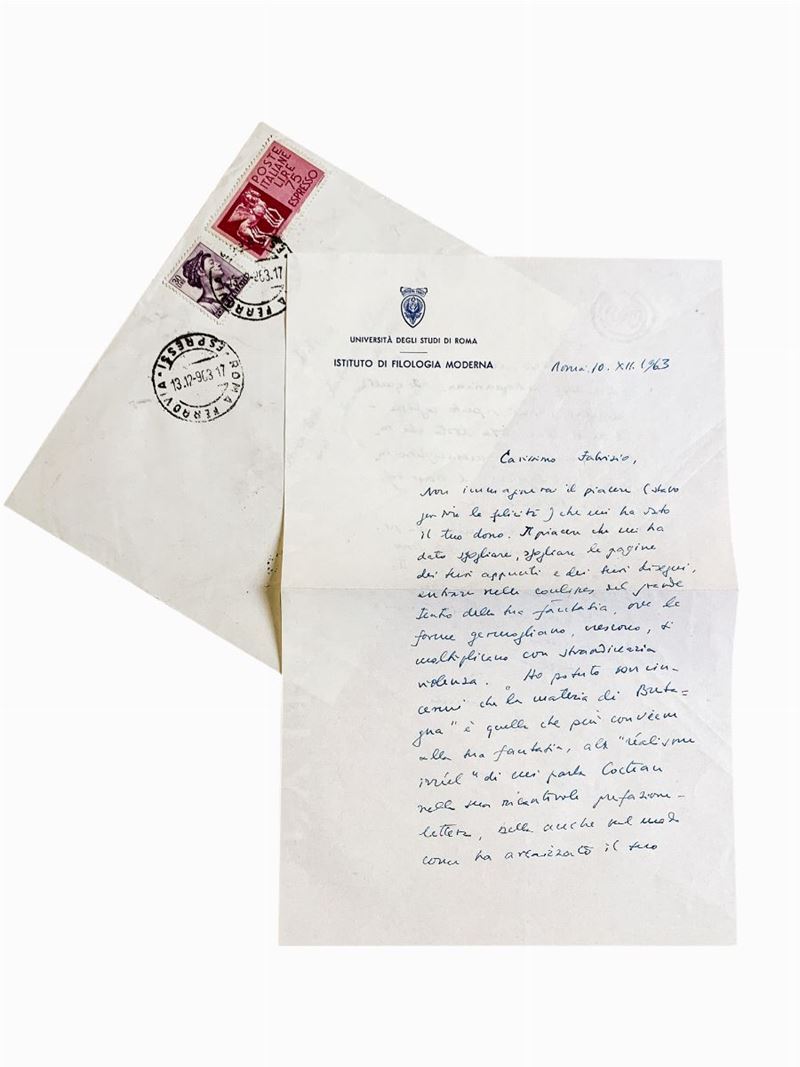 POSTE
ITALIANE
LIRE
75
ESPRESSO
30
ROMA FERROVIA
ESPRESSI
13.12-963.17
UNIVERSITÀ DEGLI STUDI DI ROMA
ISTITUTO DI FILOLOGIA MODERNA
Roma, 10. XII. 1963
Carissimo Fabrizio,
Non immaginerai il piacere (stavo
per dire la felicità) che mi ha dato
il tuo dono. Il piacere che mi ha
dato sfogliare, sfogliare le pagine
dei tuoi appunti e dei tuoi disegni,
entrare nelle coulisses del grande
teatro della tua fantasia, ove le
forme germogliano, crescono, si
moltiplicano con straordinaria
violenza. Ho potuto convin-
cermi che la "materia di Breta-
gna" è quella che più conviene
alla tua fantasia, al "réalisme
irréel" di cui parla Cocteau
nella sua prefazione-
lettera, bella anche nel modo
come ha arcaizzato il tuo